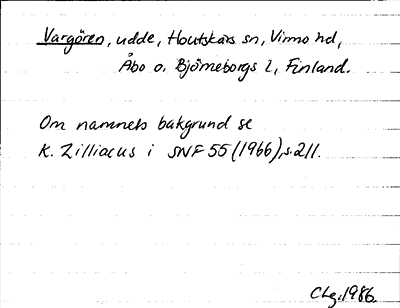 Vargören, udde, Houtskärs sn, Virmo hd,
Åbo o. Björneborgs l, Finland.
Om namnets bakgrund se
K. Zilliacus i SNF 55 (1966), s. 211.
CLg. 1986.